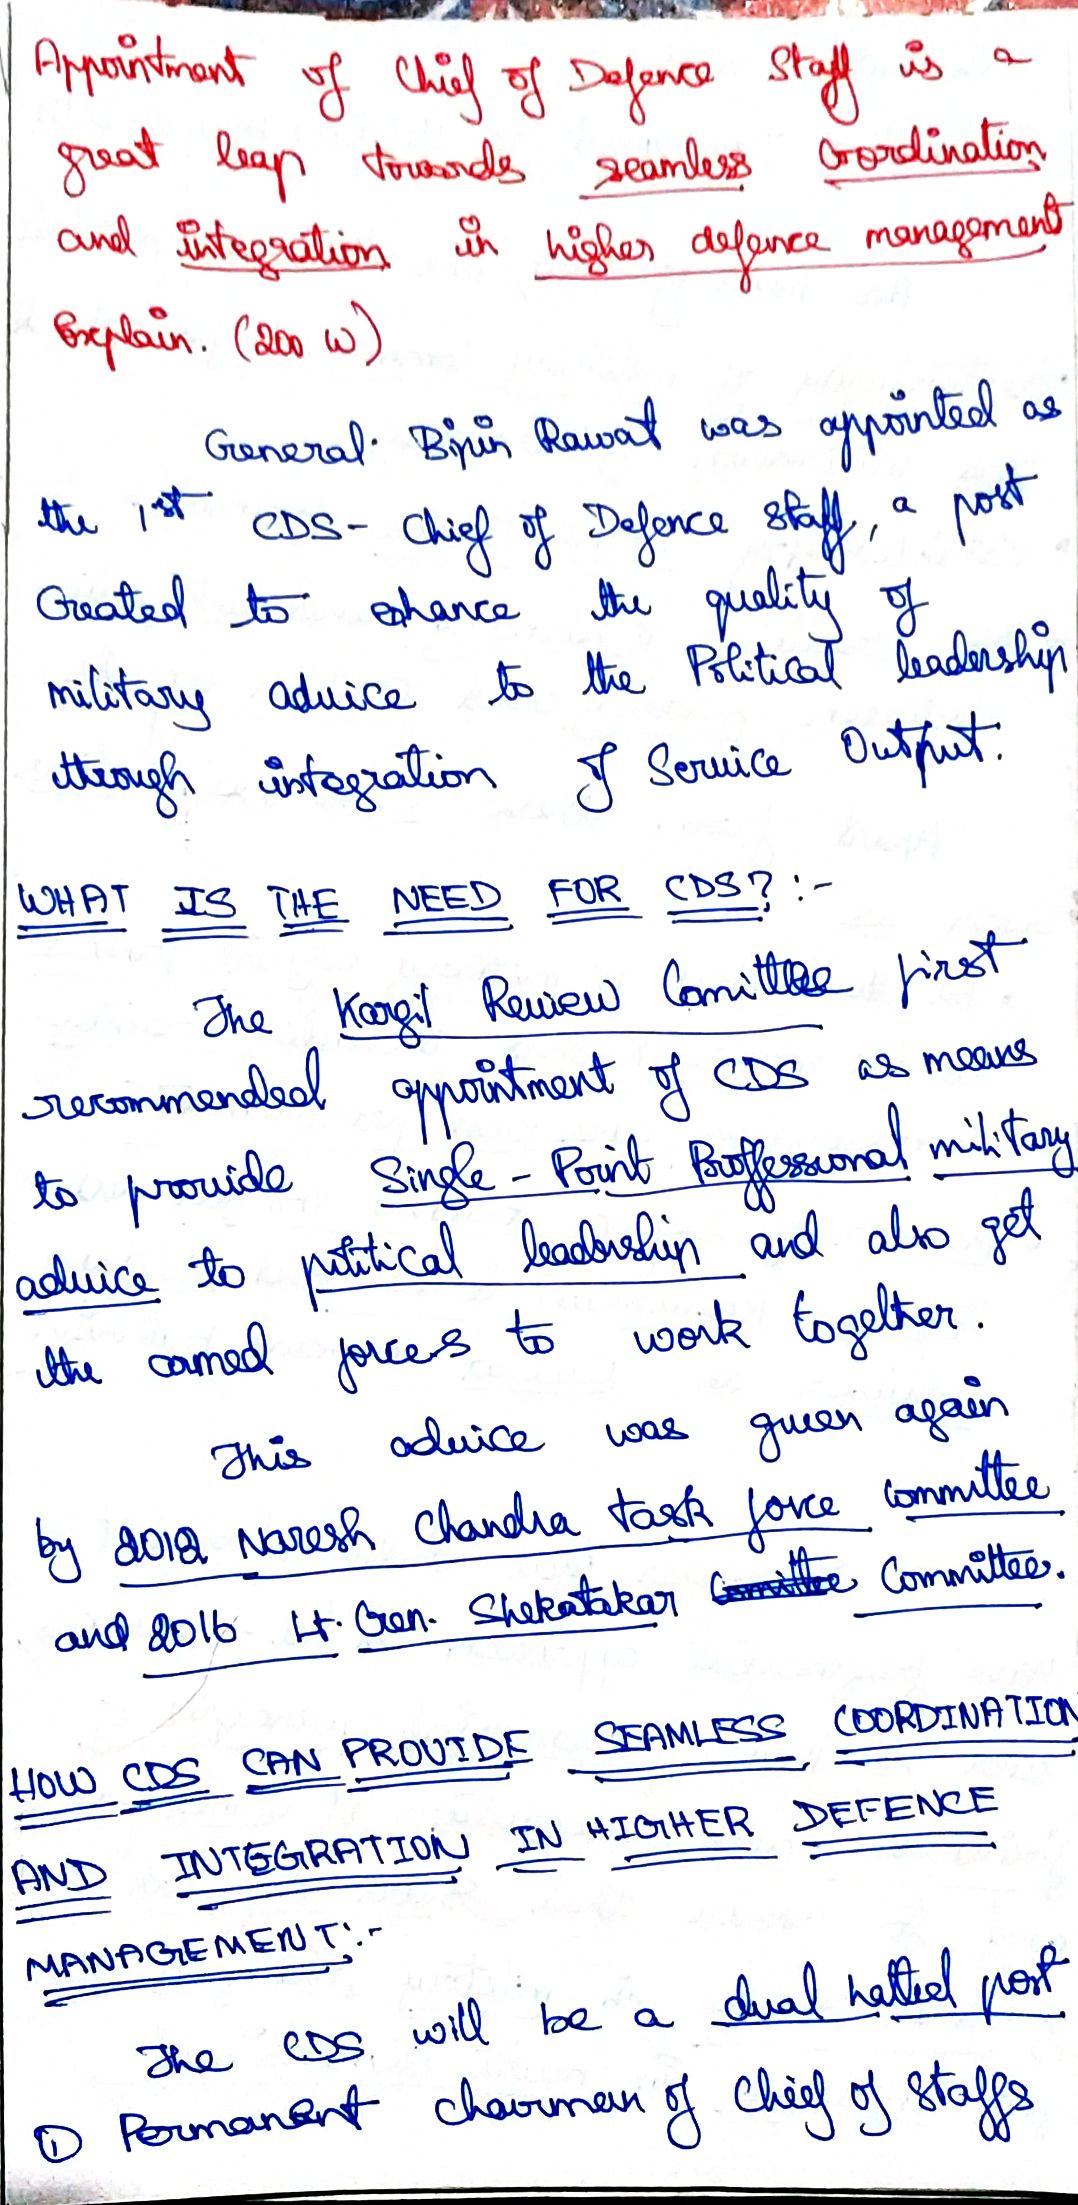 Appointment of Chief of Defence Staff is a
great leap towards seamless Coordination
and integration in higher defence management
Explain. (200 W)
General Bipin Rawat was appointed as
the 1st CDS - Chief of Defence Staff, a post
Created to ehance the quality of
military advice to the Political leadership
through integration of Service Output.
WHAT IS THE NEED FOR CDS? :-
The Kargil Review Comittee first
recommended appointment of CDS as means
to provide Single - Point Proffessional military
advice to political leadership and also get
the armed forces to work together.
This advice was given again
by 2012 Naresh Chandra task force Committee
and 2016 Lt. Gen. Shekatakar Committee.
HOW CDS CAN PROVIDE SEAMLESS COORDINATION
AND INTEGRATION IN HIGHER DEFENCE
MANAGEMENT :-
The CDS will be a dual hatted post
① Permanent chairman of Chief of Staffs